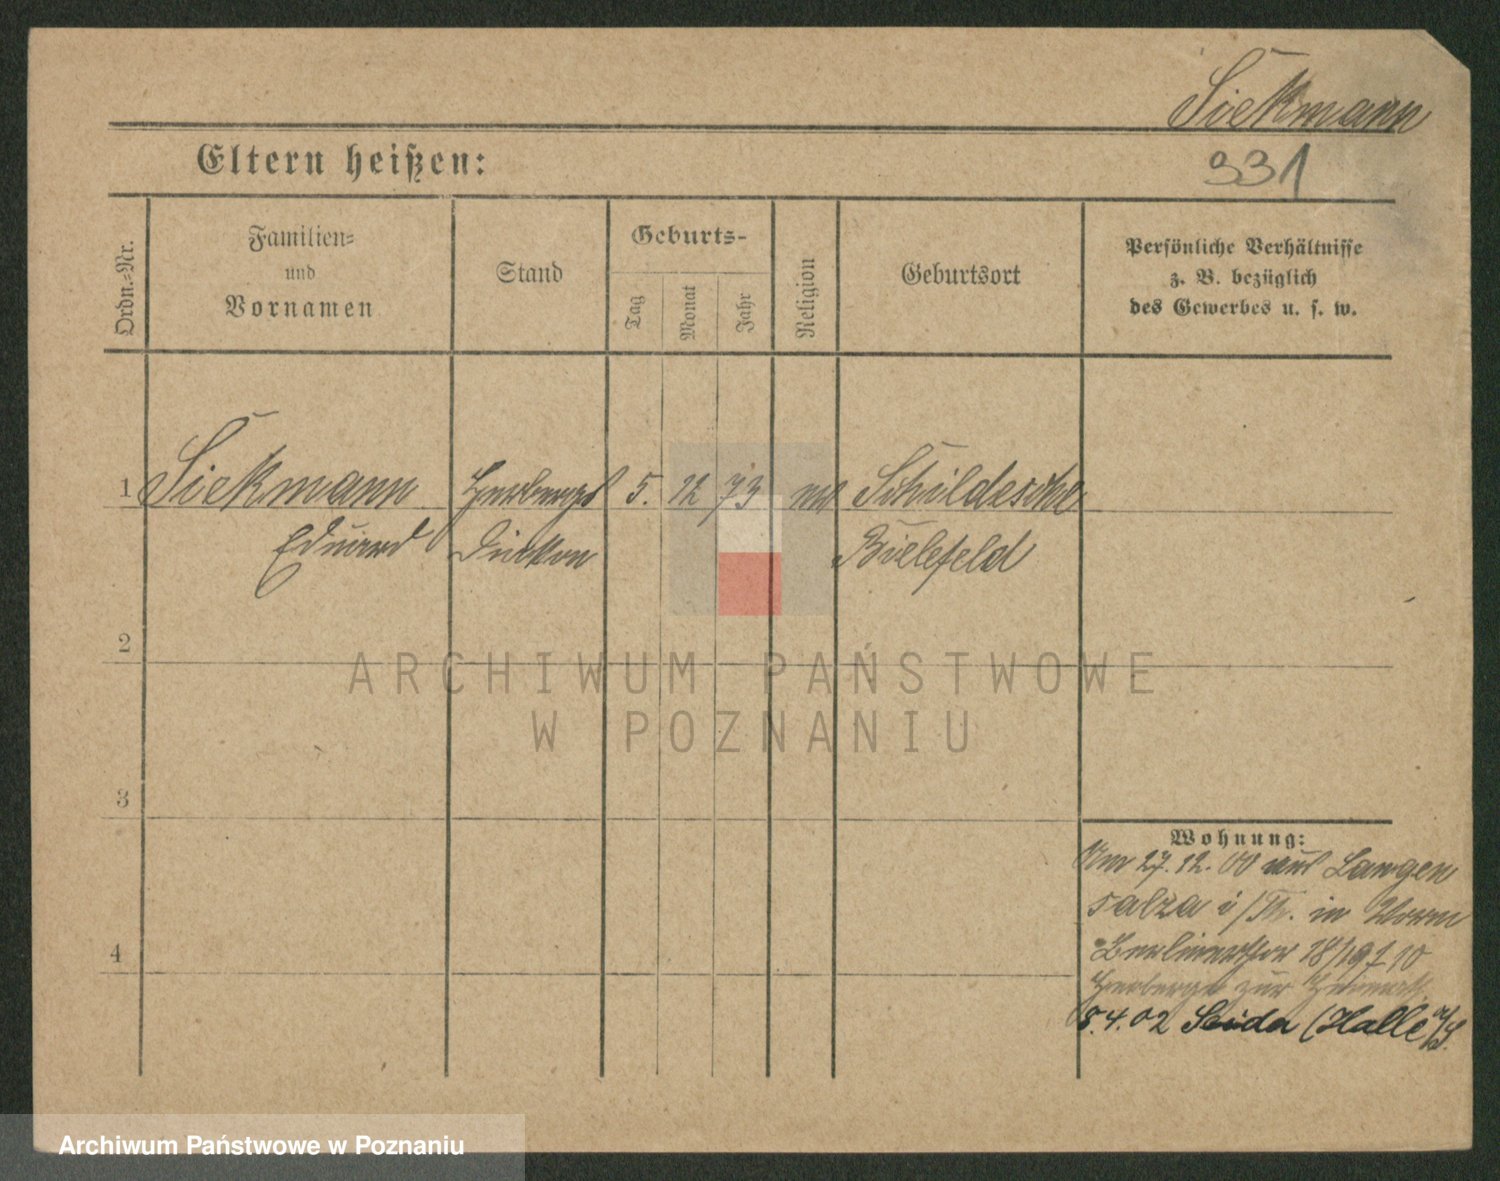 Siekmann
331
Eltern heißen:
Ordn.-Nr.
Familien-
und
Vornamen
Stand
Geburts-
Tag
Monat
Jahr
Religion
Geburtsort
Persönliche Verhältnisse
z. B. bezüglich
des Gewerbes u. s. w.
1 Siekmann Herbergs 5. 12 73 Schildesche
Eduard Bielefeld
2
3
4
Wohnung:
Am 27.12.00 aus Langen
salza i/Th. in
Berlinerthor 18/19
Herberge zur Heimath
5.4.02 (Halle a/S.
ARCHIWUM PAŃSTWOWE
W POZNANIU
Archiwum Państwowe w Poznaniu